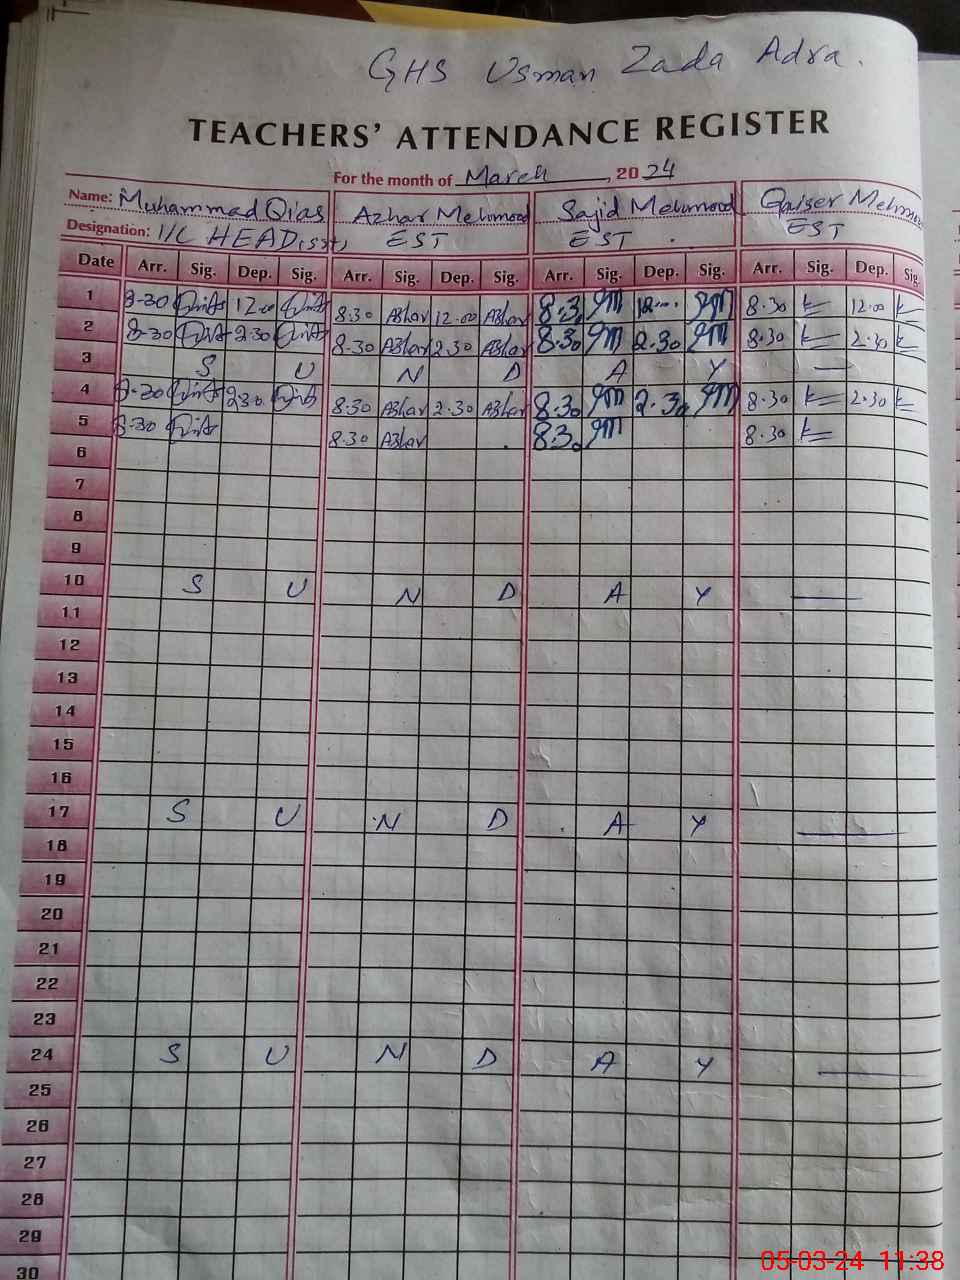 GHS Usman Zada Adra.
TEACHERS' ATTENDANCE REGISTER
For the month of March, 2024
Name: Muhammad Qias Azhar Mehmood Sajid Mehmood Qaiser Mehmood
Designation: I/C HEAD(SST) EST EST EST
Date Arr. Sig. Dep. Sig. Arr. Sig. Dep. Sig. Arr. Sig. Dep. Sig. Arr. Sig. Dep. Sig.
1 8-30 12.00 8.30 Azhar 12.00 Azhar 8.30 12.00 8.30 12.00
2 8-30 2.30 8.30 Azhar 2.30 Azhar 8.30 2.30 8.30 2.30
3 S U N D A Y
4 8-30 2.30 8.30 Azhar 2.30 Azhar 8.30 2.30 8.30 2.30
5 8-30 8.30 Azhar 8.30 8.30
6
7
8
9
10 S U N D A Y
11
12
13
14
15
16
17 S U N D A Y
18
19
20
21
22
23
24 S U N D A Y
25
26
27
28
29
30
05-03-24 11:38